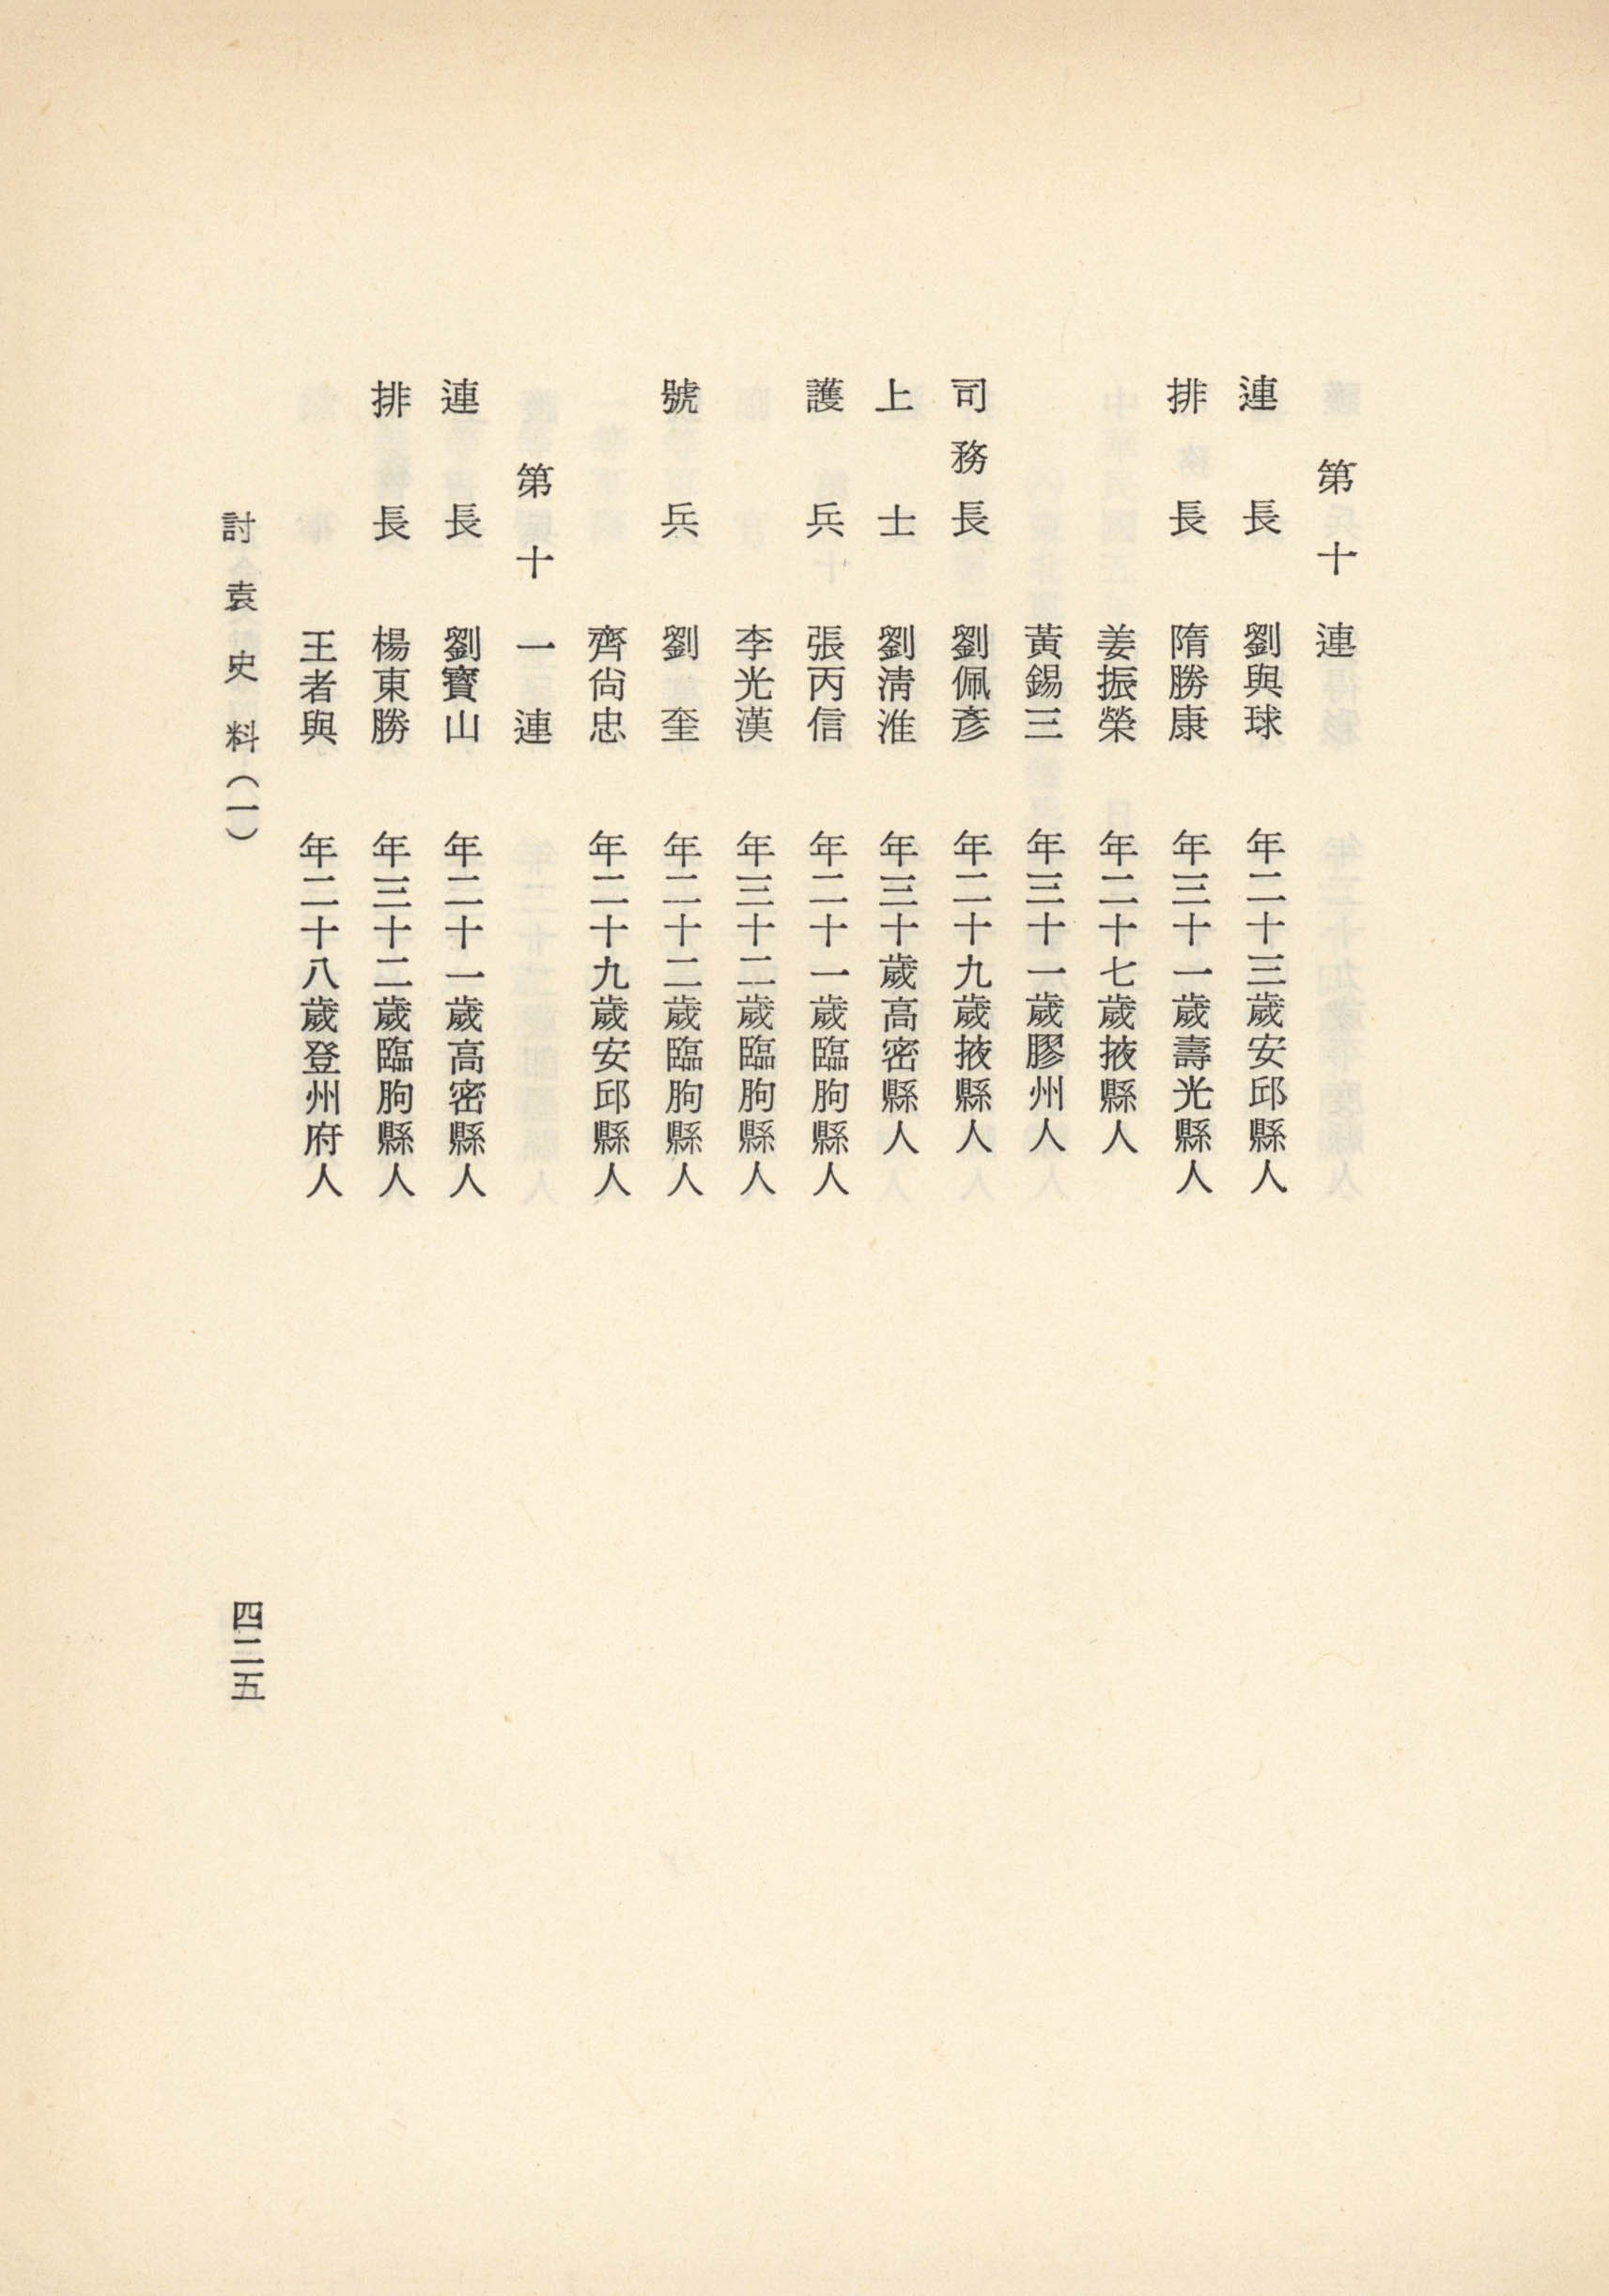 第十連
連長 劉與球 年二十三歲安邱縣人
排長 隋勝康 年三十一歲壽光縣人
姜振榮 年二十七歲掖縣人
黃錫三 年三十一歲膠州人
司務長 劉佩彥 年二十九歲掖縣人
上士 劉淸淮 年三十歲高密縣人
護兵 張丙信 年二十一歲臨朐縣人
李光漢 年三十二歲臨朐縣人
號兵 劉奎 年二十二歲臨朐縣人
齊尙忠 年二十九歲安邱縣人
第十一連
連長 劉寶山 年二十一歲高密縣人
排長 楊東勝 年三十二歲臨朐縣人
王者與 年二十八歲登州府人
討袁史料(一)
四二五